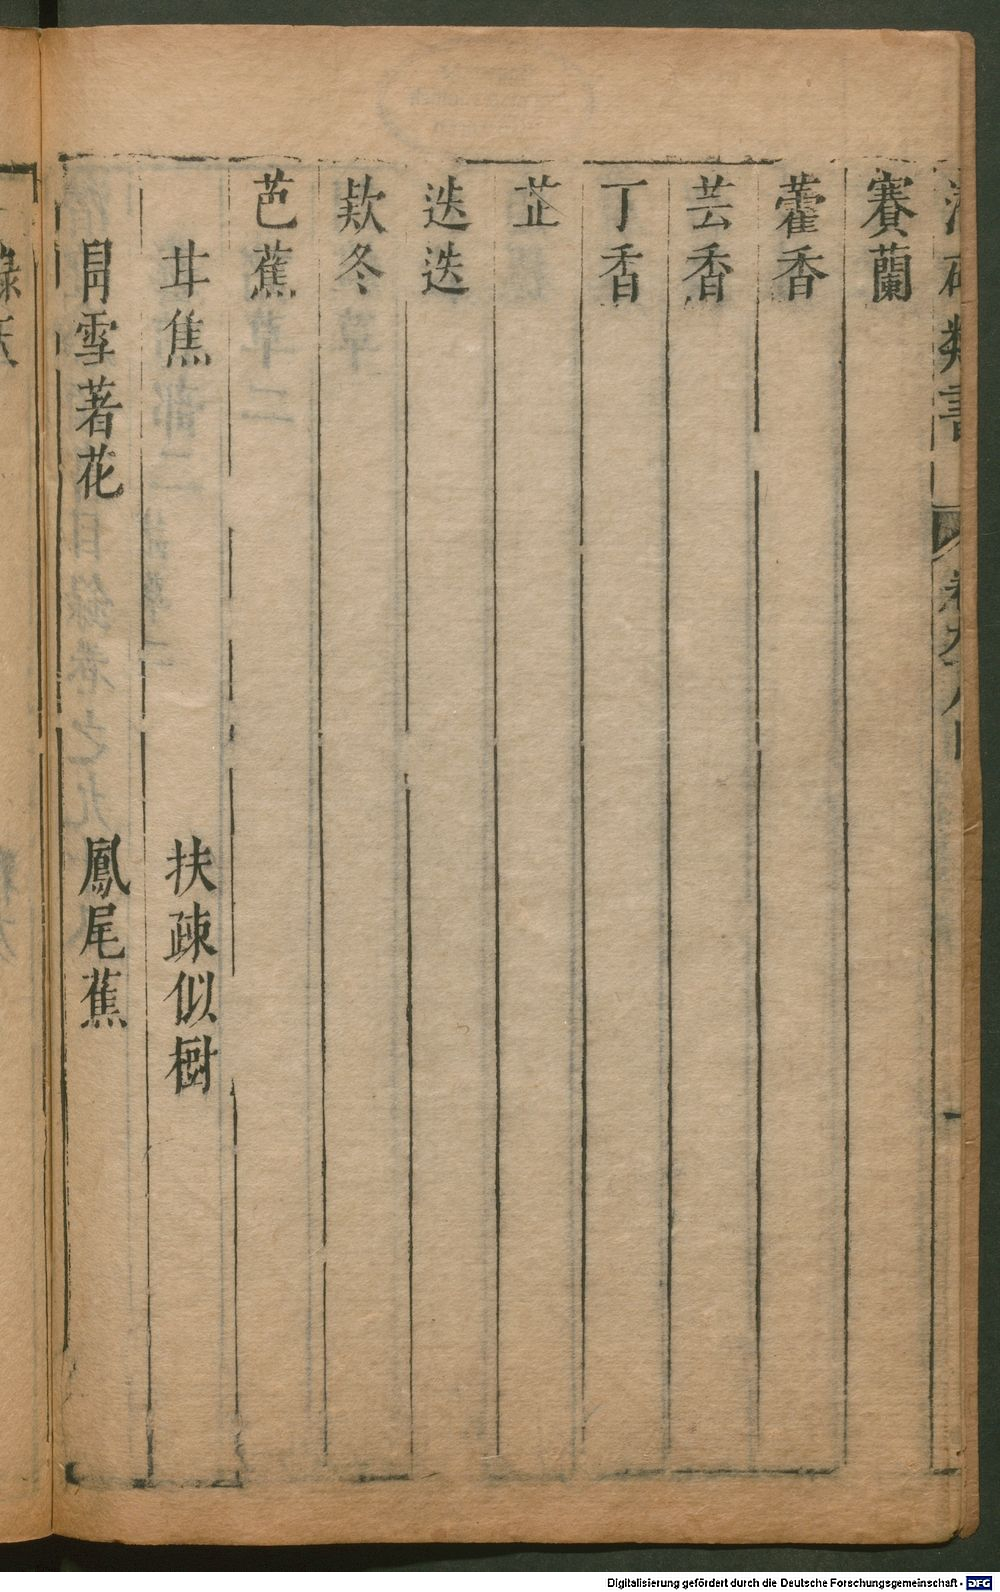 類書
賽蘭
藿香
芸香
丁香
芷
迭迭
欵冬
芭蕉
甘焦 扶疎似樹
冐雪著花 鳳尾蕉
綠天
Digitalisierung gefördert durch die Deutsche Forschungsgemeinschaft - DFG